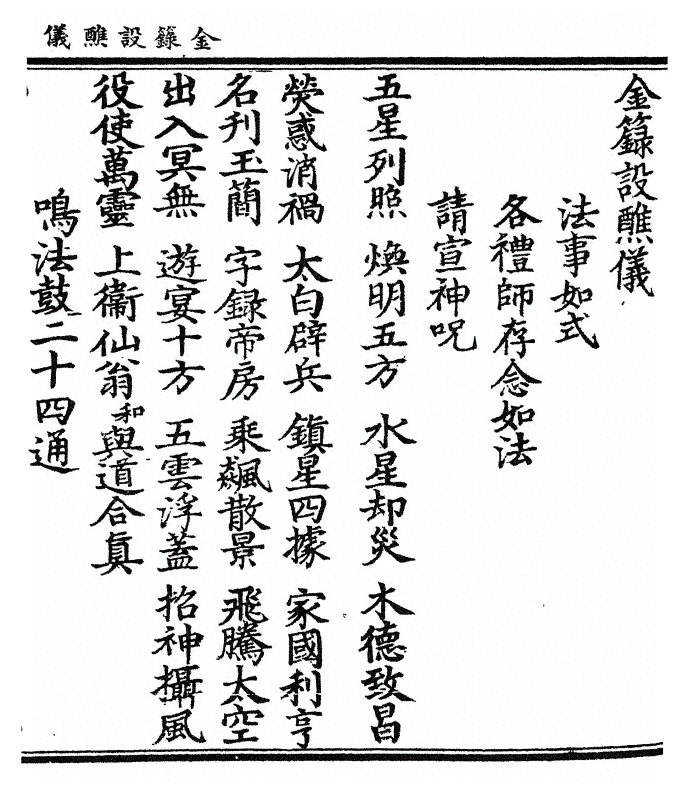 金籙設醮儀
金籙設醮儀
法事如式
各禮師存念如法
請宣神呪
五星列照 煥明五方 水星却災 木德致昌
熒惑消禍 太白辟兵 鎮星四據 家國利亨
名刋玉簡 字録帝房 乘飈散景 飛騰太空
出入冥無 遊宴十方 五雲浮蓋 招神攝風
役使萬靈 上衞仙翁 和 與道合眞
鳴法鼓二十四通